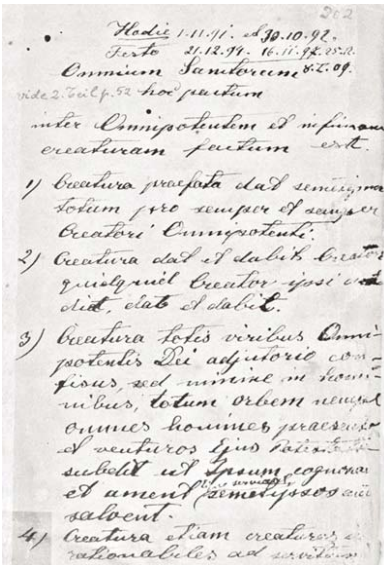 202
Hodie 1.11.91. et 30.10.92.
Festo 21.12.94. 16.11.
Omnium Sanctorum 8.I.09.
vide 2. Teil p. 52 hoc pactum
inter Omnipotentem et infimam
creaturam factum est.
1) Creatura praefata dat semetipsam
totam pro semper et semper
Creatori Omnipotenti.
2) Creatura dat et dabit Creatori
quidquid Creator ipsi
dat et dabit.
3) Creatura totis viribus Omni-
potentis Dei adjutorio con-
fisus, sed nimine in homi-
nibus, totum orbem nempe
omnes homines praesentes
et venturos Ejus
subdit ut Ipsum cognoscant
et ament semetipsos
salvent.
4) Creatura etiam creaturas
rationabiles ad